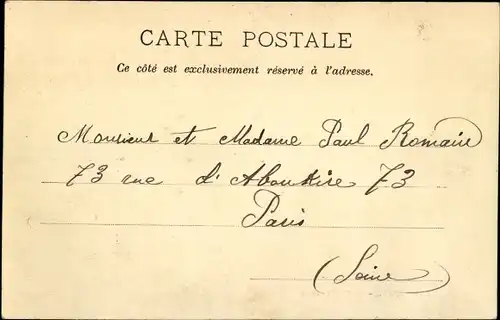 CARTE POSTALE
Ce côté est exclusivement réservé à l'adresse.
Monsieur et Madame Paul Romain
73 rue d'Aboukire 73
Paris
(Seine)